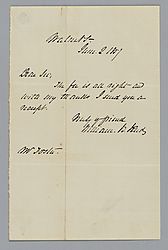 June 2
Dear Sir,
The fee is all right and
with my thanks I send you a
receipt.
Truly yr friend
William B.
Mr Foster